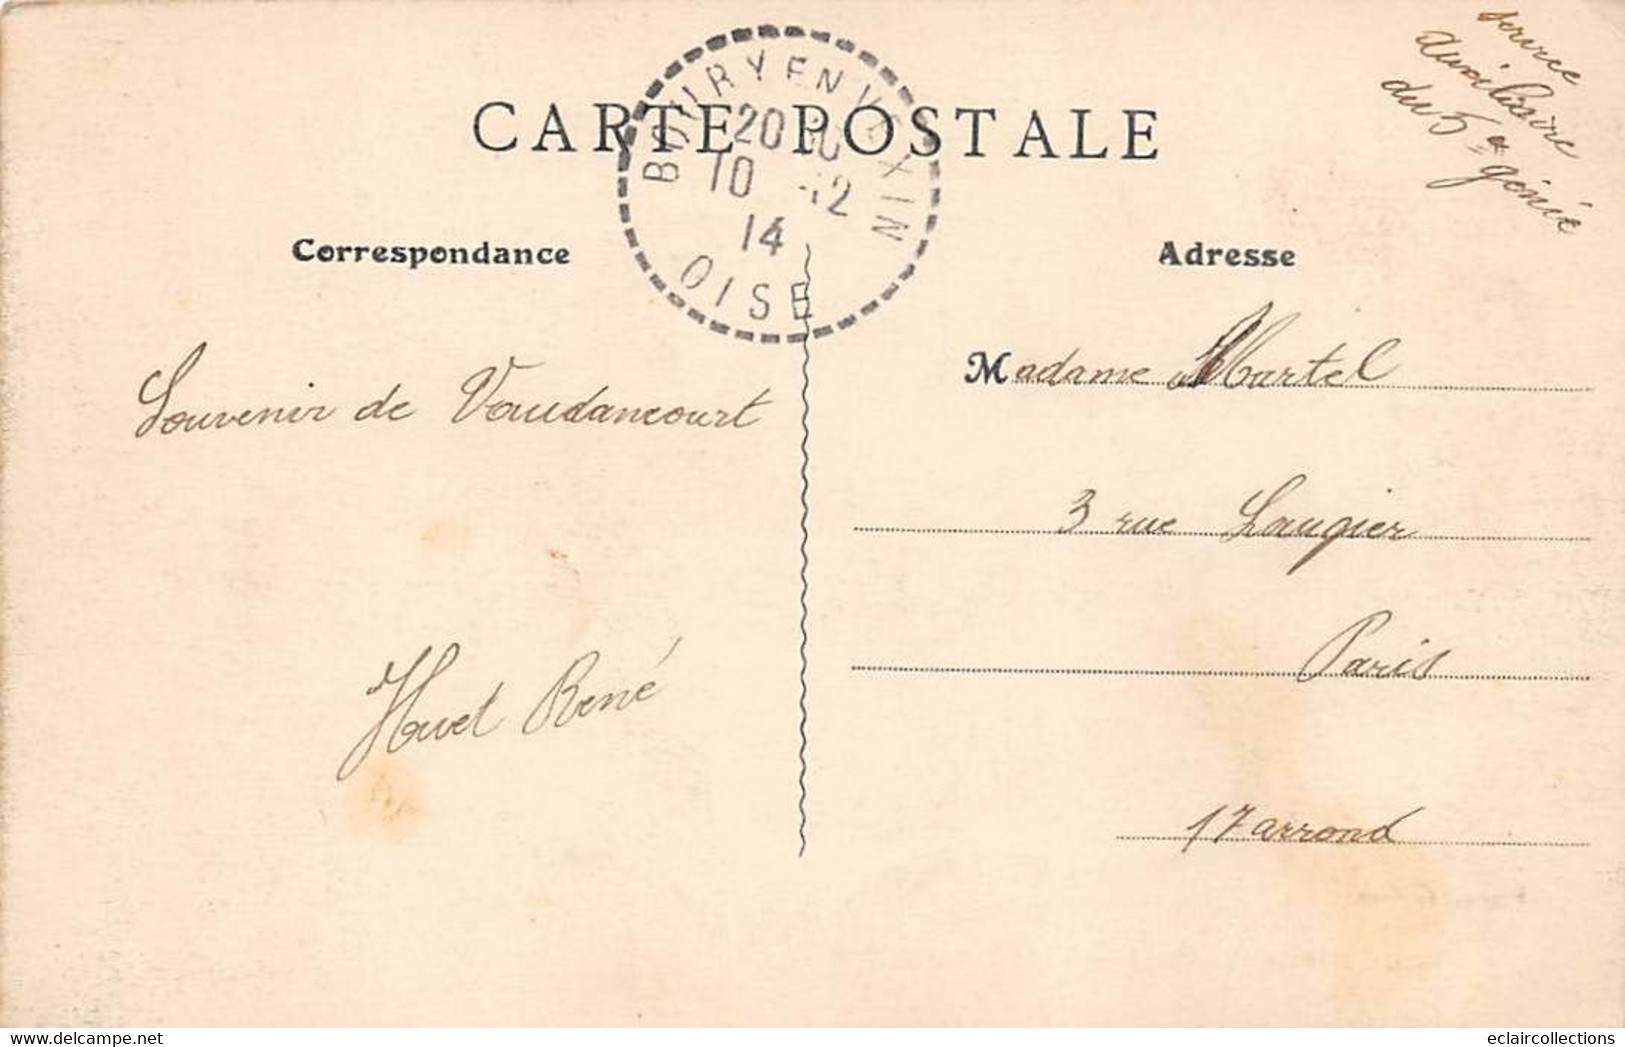 CARTE POSTALE
BOURY EN VEXIN
20
10 12
14
OISE
service
auxiliaire
du 5e génie
Correspondance
Adresse
Souvenir de Vaudancourt
Huet René
Madame Martel
3 rue Laugier
Paris
17 arrond
eclaircollections